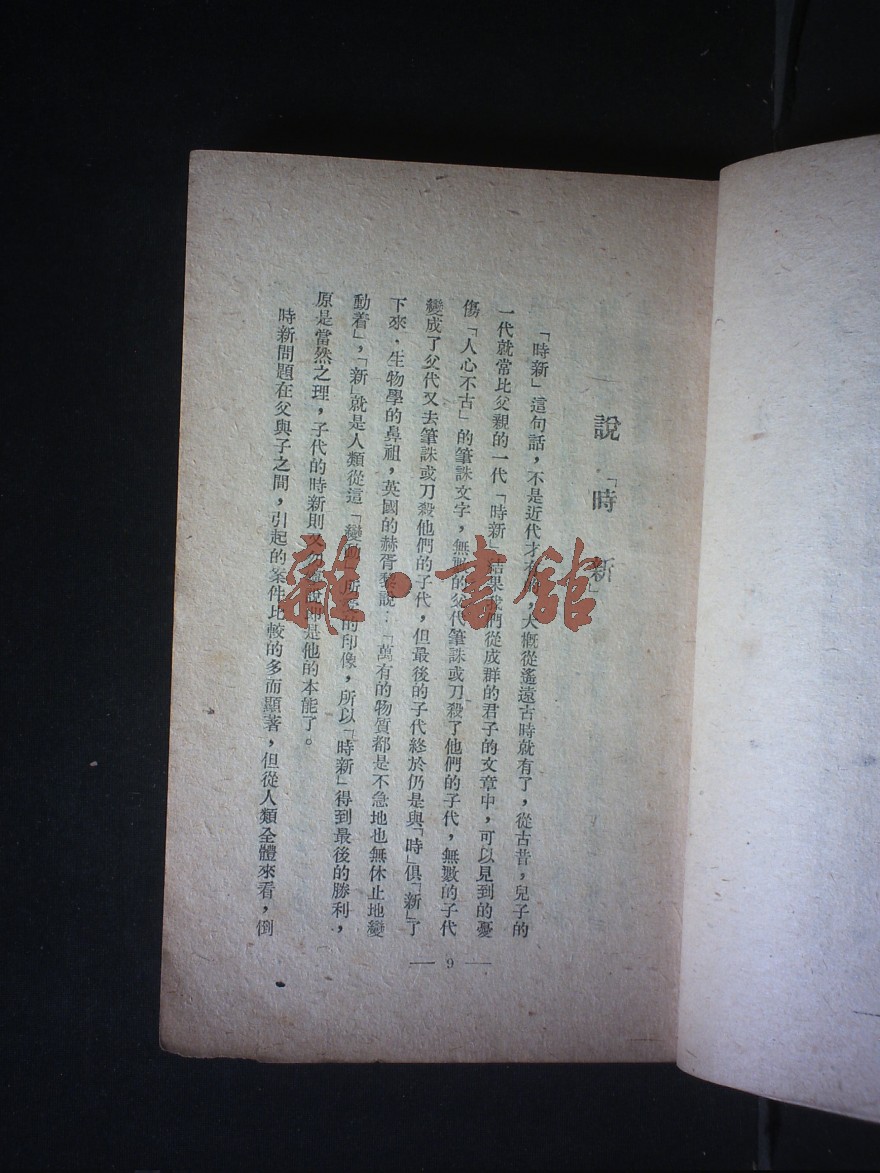 說「時新」
「時新」這句話，不是近代才有，大槪從遙遠古時就有了，從古昔，兒子的
一代就常比父親的一代「時新」結果我們從成群的君子的文章中，可以見到的憂
傷「人心不古」的筆誅文字，無數的父代筆誅或刀殺了他們的子代，無數的子代
變成了父代又去筆誅或刀殺他們的子代，但最後的子代終於仍是與「時」俱「新」了
下來．生物學的鼻祖，英國的赫胥黎說：「萬有的物質都是不急地也無休止地變
動着」，「新」就是人類從這「變動」所的印像，所以「時新」得到最後的勝利，
原是當然之理，子代的時新則又是他的本能了。
時新問題在父與子之間，引起的案件比較的多而顯著，但從人類全體來看，倒
— 9 —
雜·書館